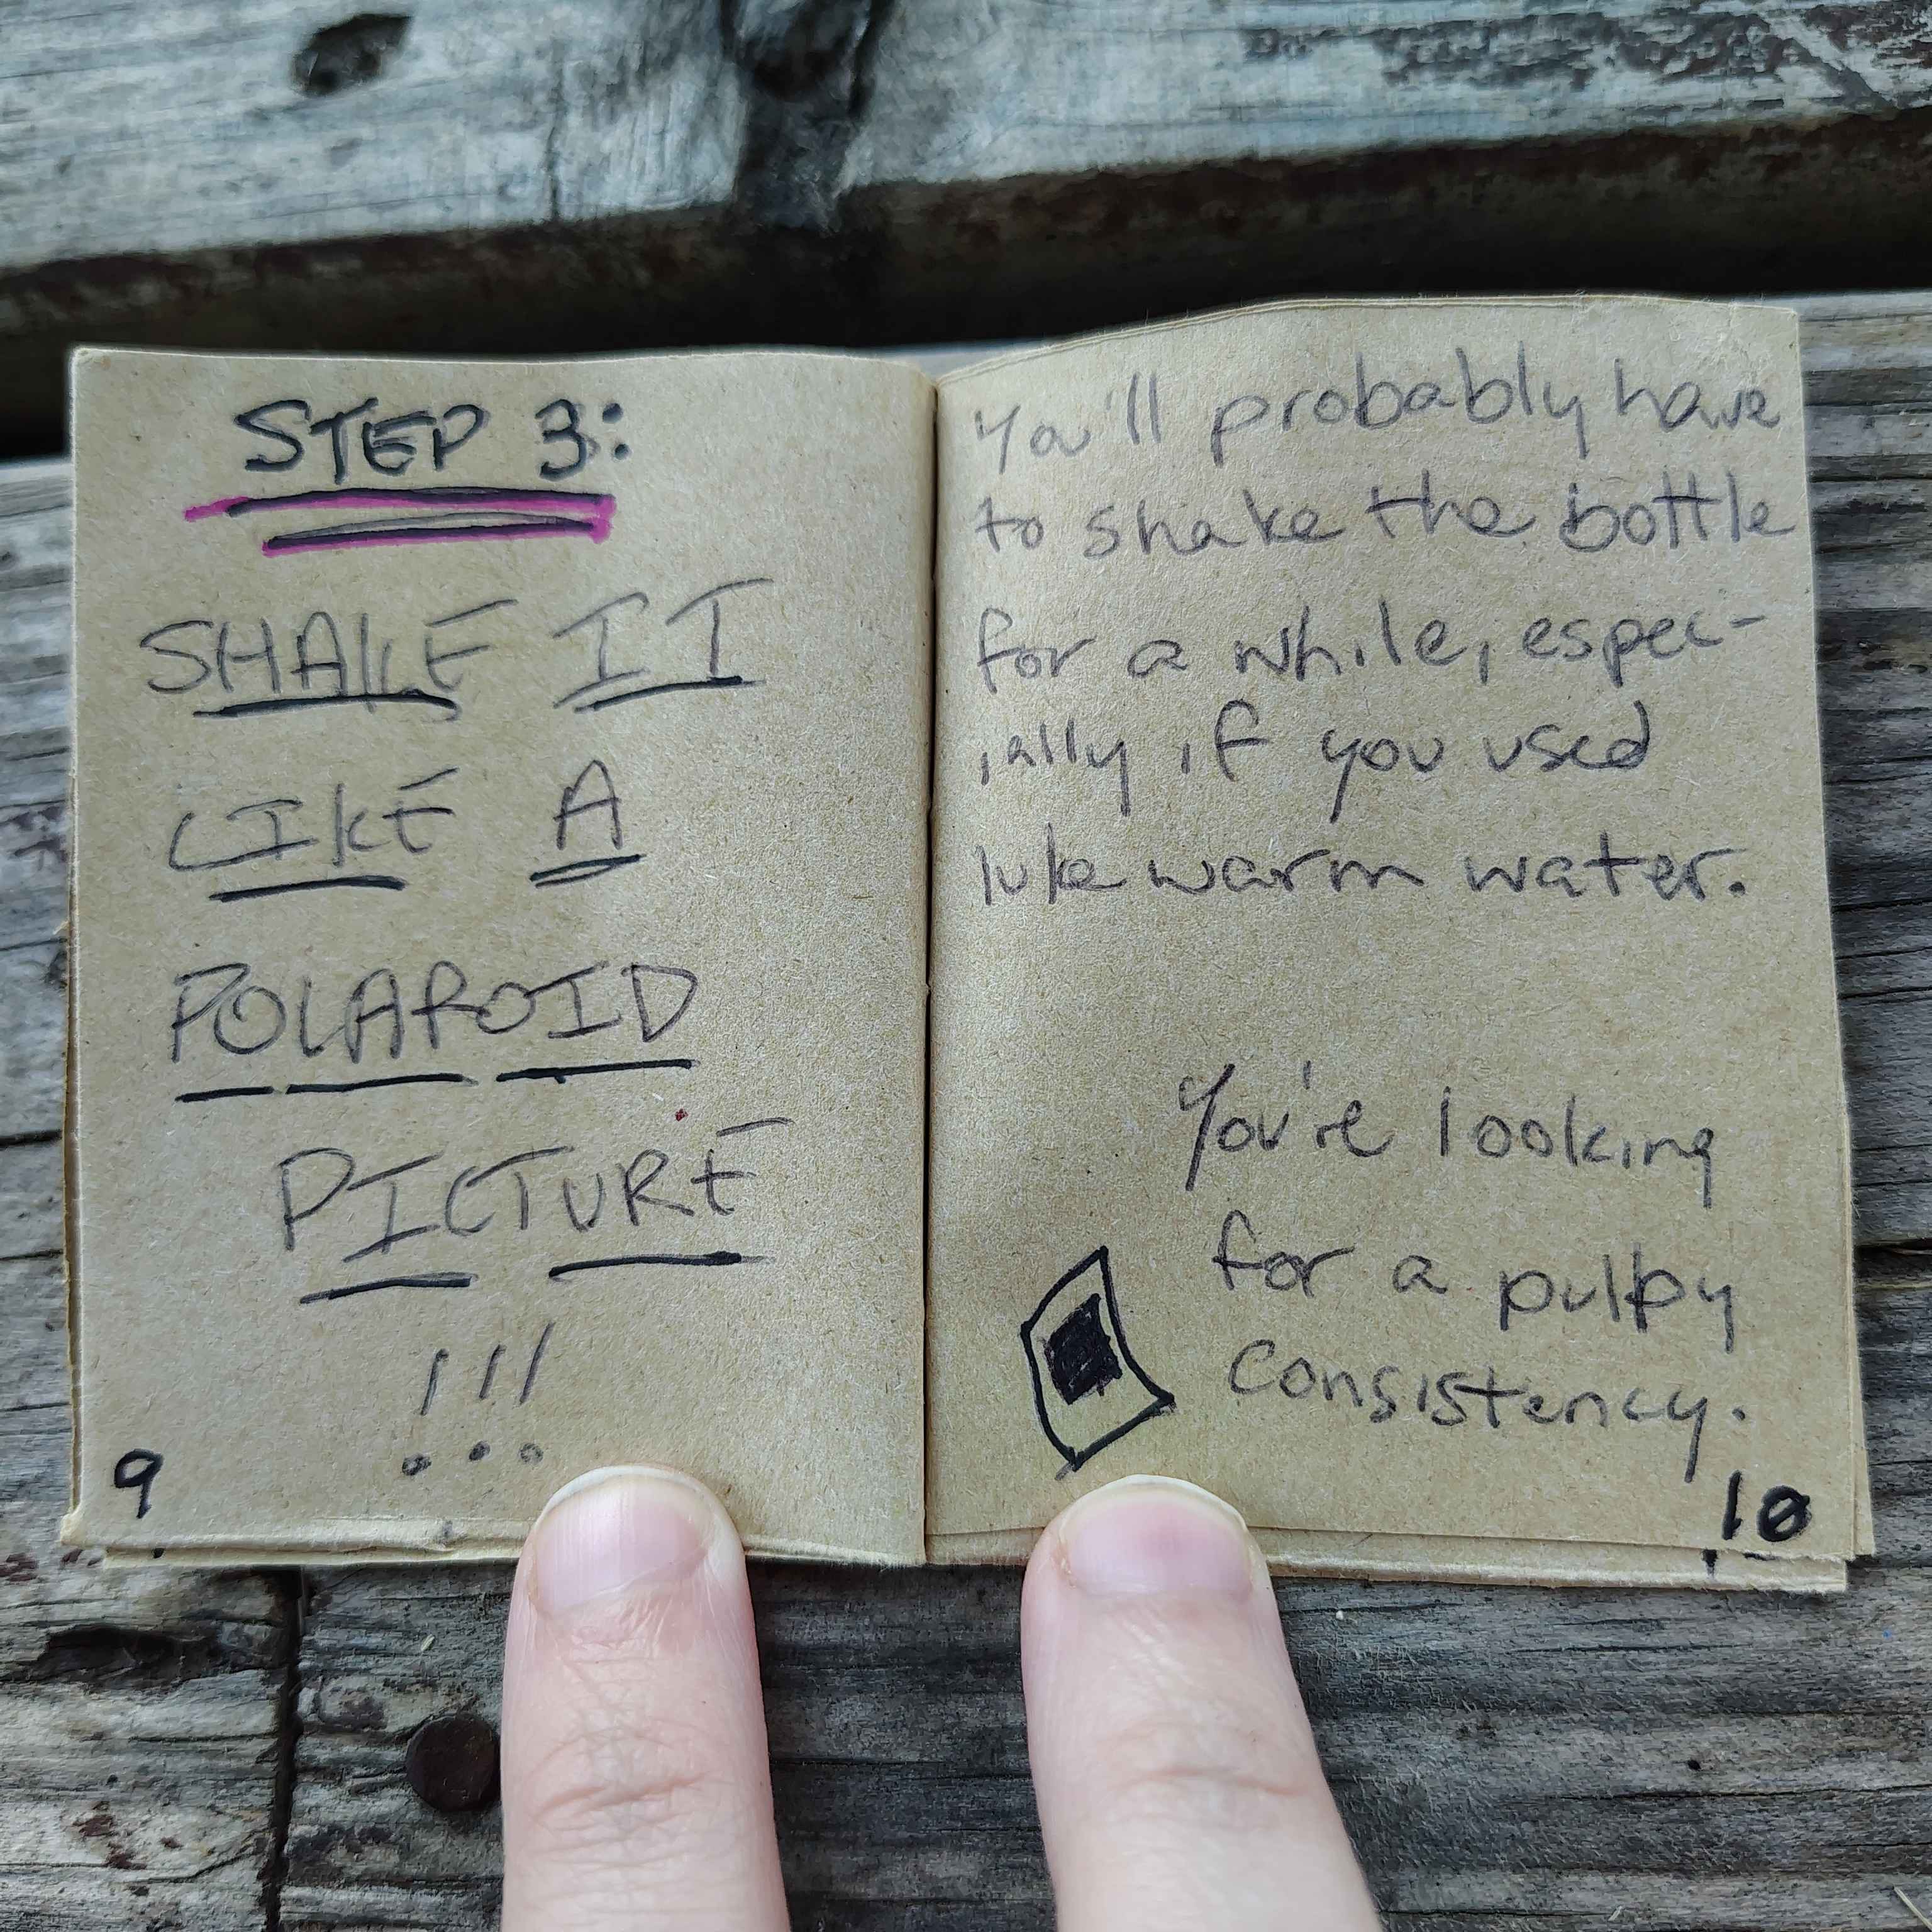 STEP 3:
SHAKE IT
LIKE A
POLAROID
PICTURE
!!!
9
You'll probably have
to shake the bottle
for a while, espec-
ially if you used
luke warm water.
You're looking
for a pulpy
consistency.
10